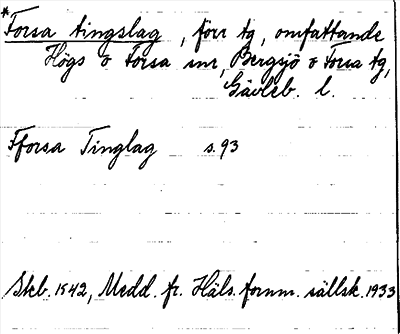 *Forsa tingslag, förr tg, omfattande
Högs o Forsa snr, Bergsjö o Forsa tg,
Gävleb. l.
Fforsa Tinglag s. 93
Skb. 1542, Medd. fr. Häls. fornm. sällsk. 1933